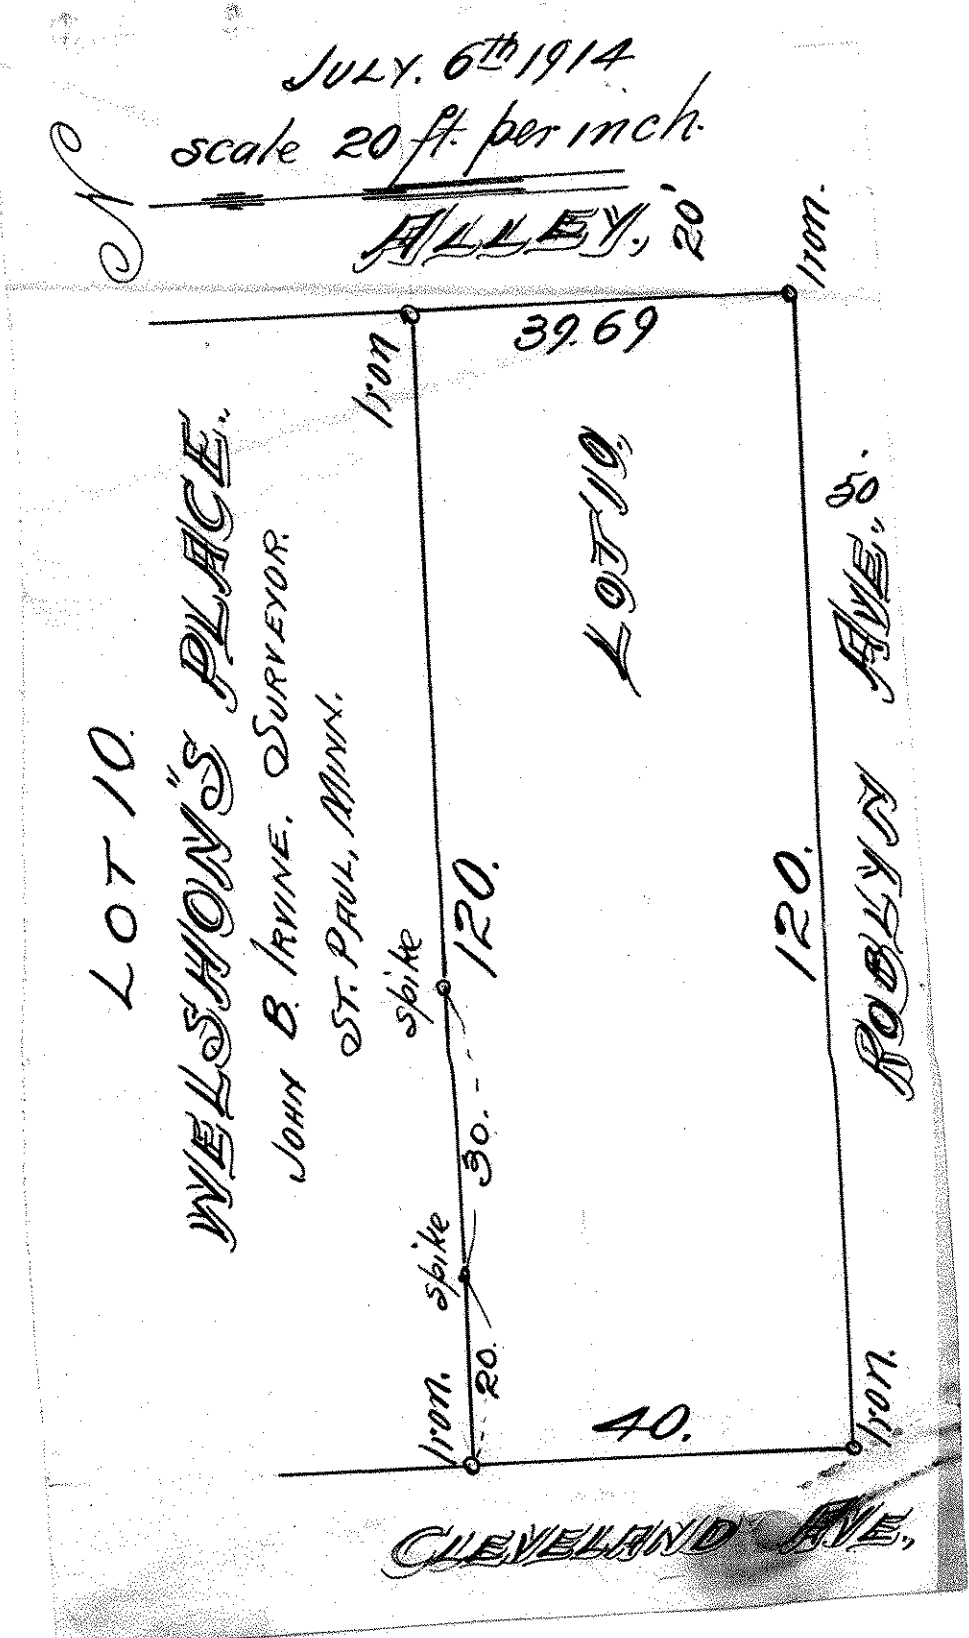 JULY. 6th 1914
scale 20 ft. per inch.
N
ALLEY., 20'
Iron.
Iron
39.69
LOT
LOT 10.
WELSHON"S PLACE.
JOHN B. IRVINE. SURVEYOR.
ST. PAUL, MINN.
spike
120.
120.
ROBLYN AVE. 50.
30.
spike
20.
Iron.
40.
Iron.
CLEVELAND AVE.,